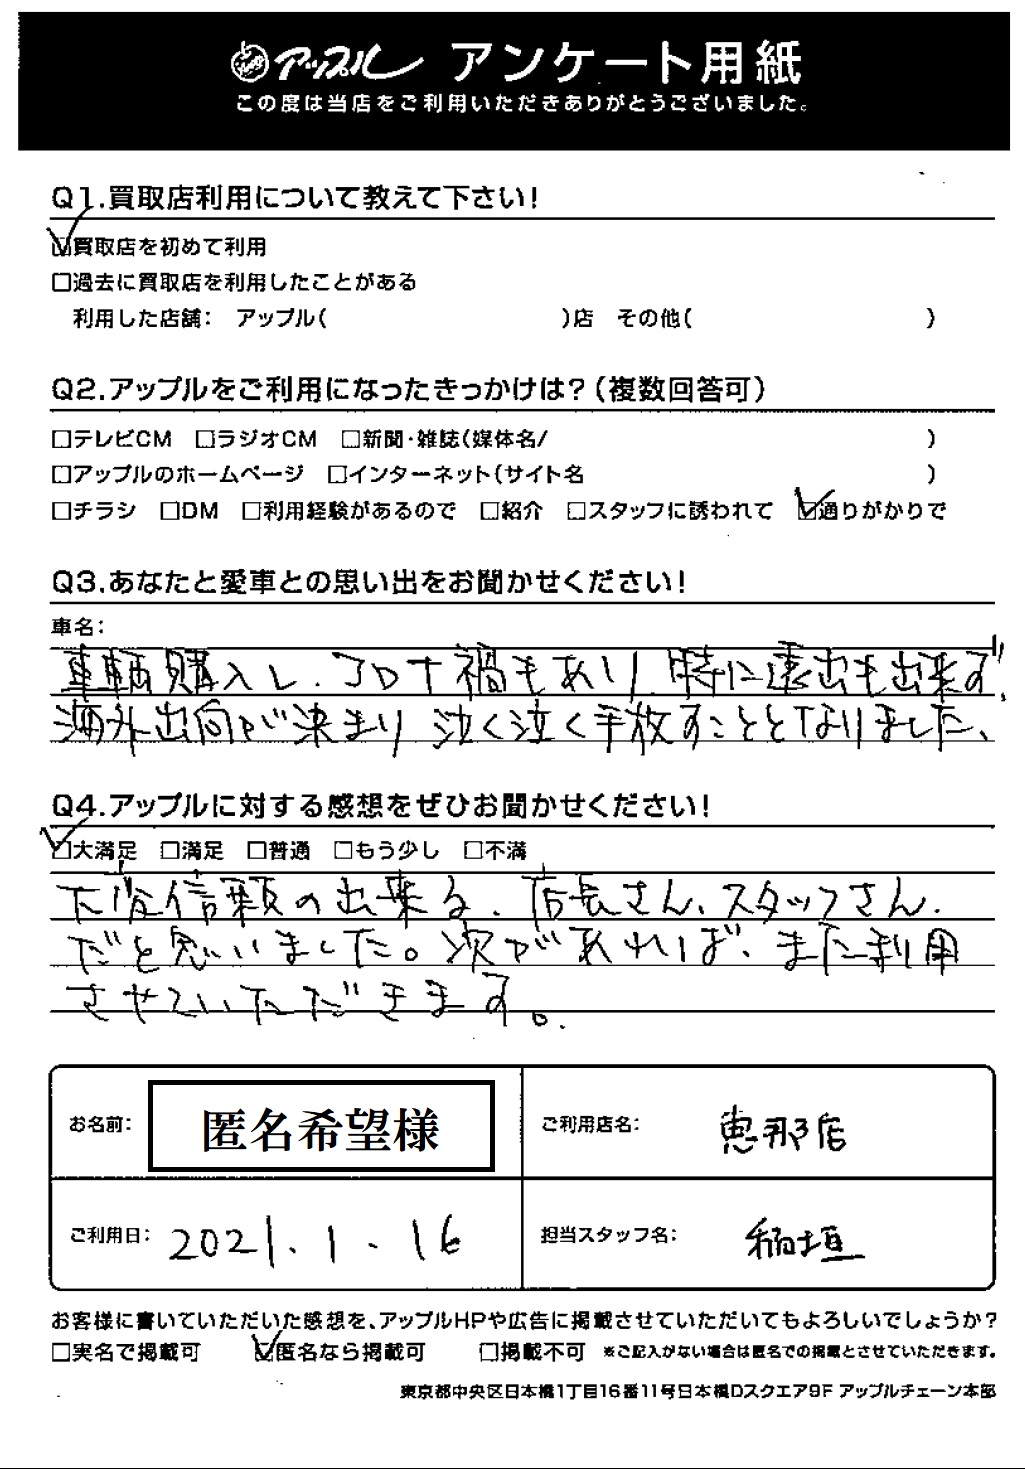 アップル アンケート用紙
この度は当店をご利用いただきありがとうございました。
Q1.買取店利用について教えて下さい!
☑買取店を初めて利用
□過去に買取店を利用したことがある
利用した店舗: アップル( )店 その他( )
Q2.アップルをご利用になったきっかけは?(複数回答可)
□テレビCM □ラジオCM □新聞・雑誌(媒体名/ )
□アップルのホームページ □インターネット(サイト名 )
□チラシ □DM □利用経験があるので □紹介 □スタッフに誘われて ☑通りがかりで
Q3.あなたと愛車との思い出をお聞かせください!
車名:
車輌購入し、コロナ禍もあり、特に遠出も出来ず、
海外出向が決まり 泣く泣く手放すこととなりました、
Q4.アップルに対する感想をぜひお聞かせください!
☑大満足 □満足 □普通 □もう少し □不満
大変信頼の出来る、店長さん、スタッフさん、
だと思いました。次があれば、また利用
させていただきます。
お名前: 匿名希望様
ご利用店名: 恵那店
ご利用日: 2021.1.16
担当スタッフ名: 稲垣
お客様に書いていただいた感想を、アップルHPや広告に掲載させていただいてもよろしいでしょうか?
□実名で掲載可 ☑匿名なら掲載可 □掲載不可 ※ご記入がない場合は匿名での掲載とさせていただきます。
東京都中央区日本橋1丁目16番11号日本橋Dスクエア9F アップルチェーン本部